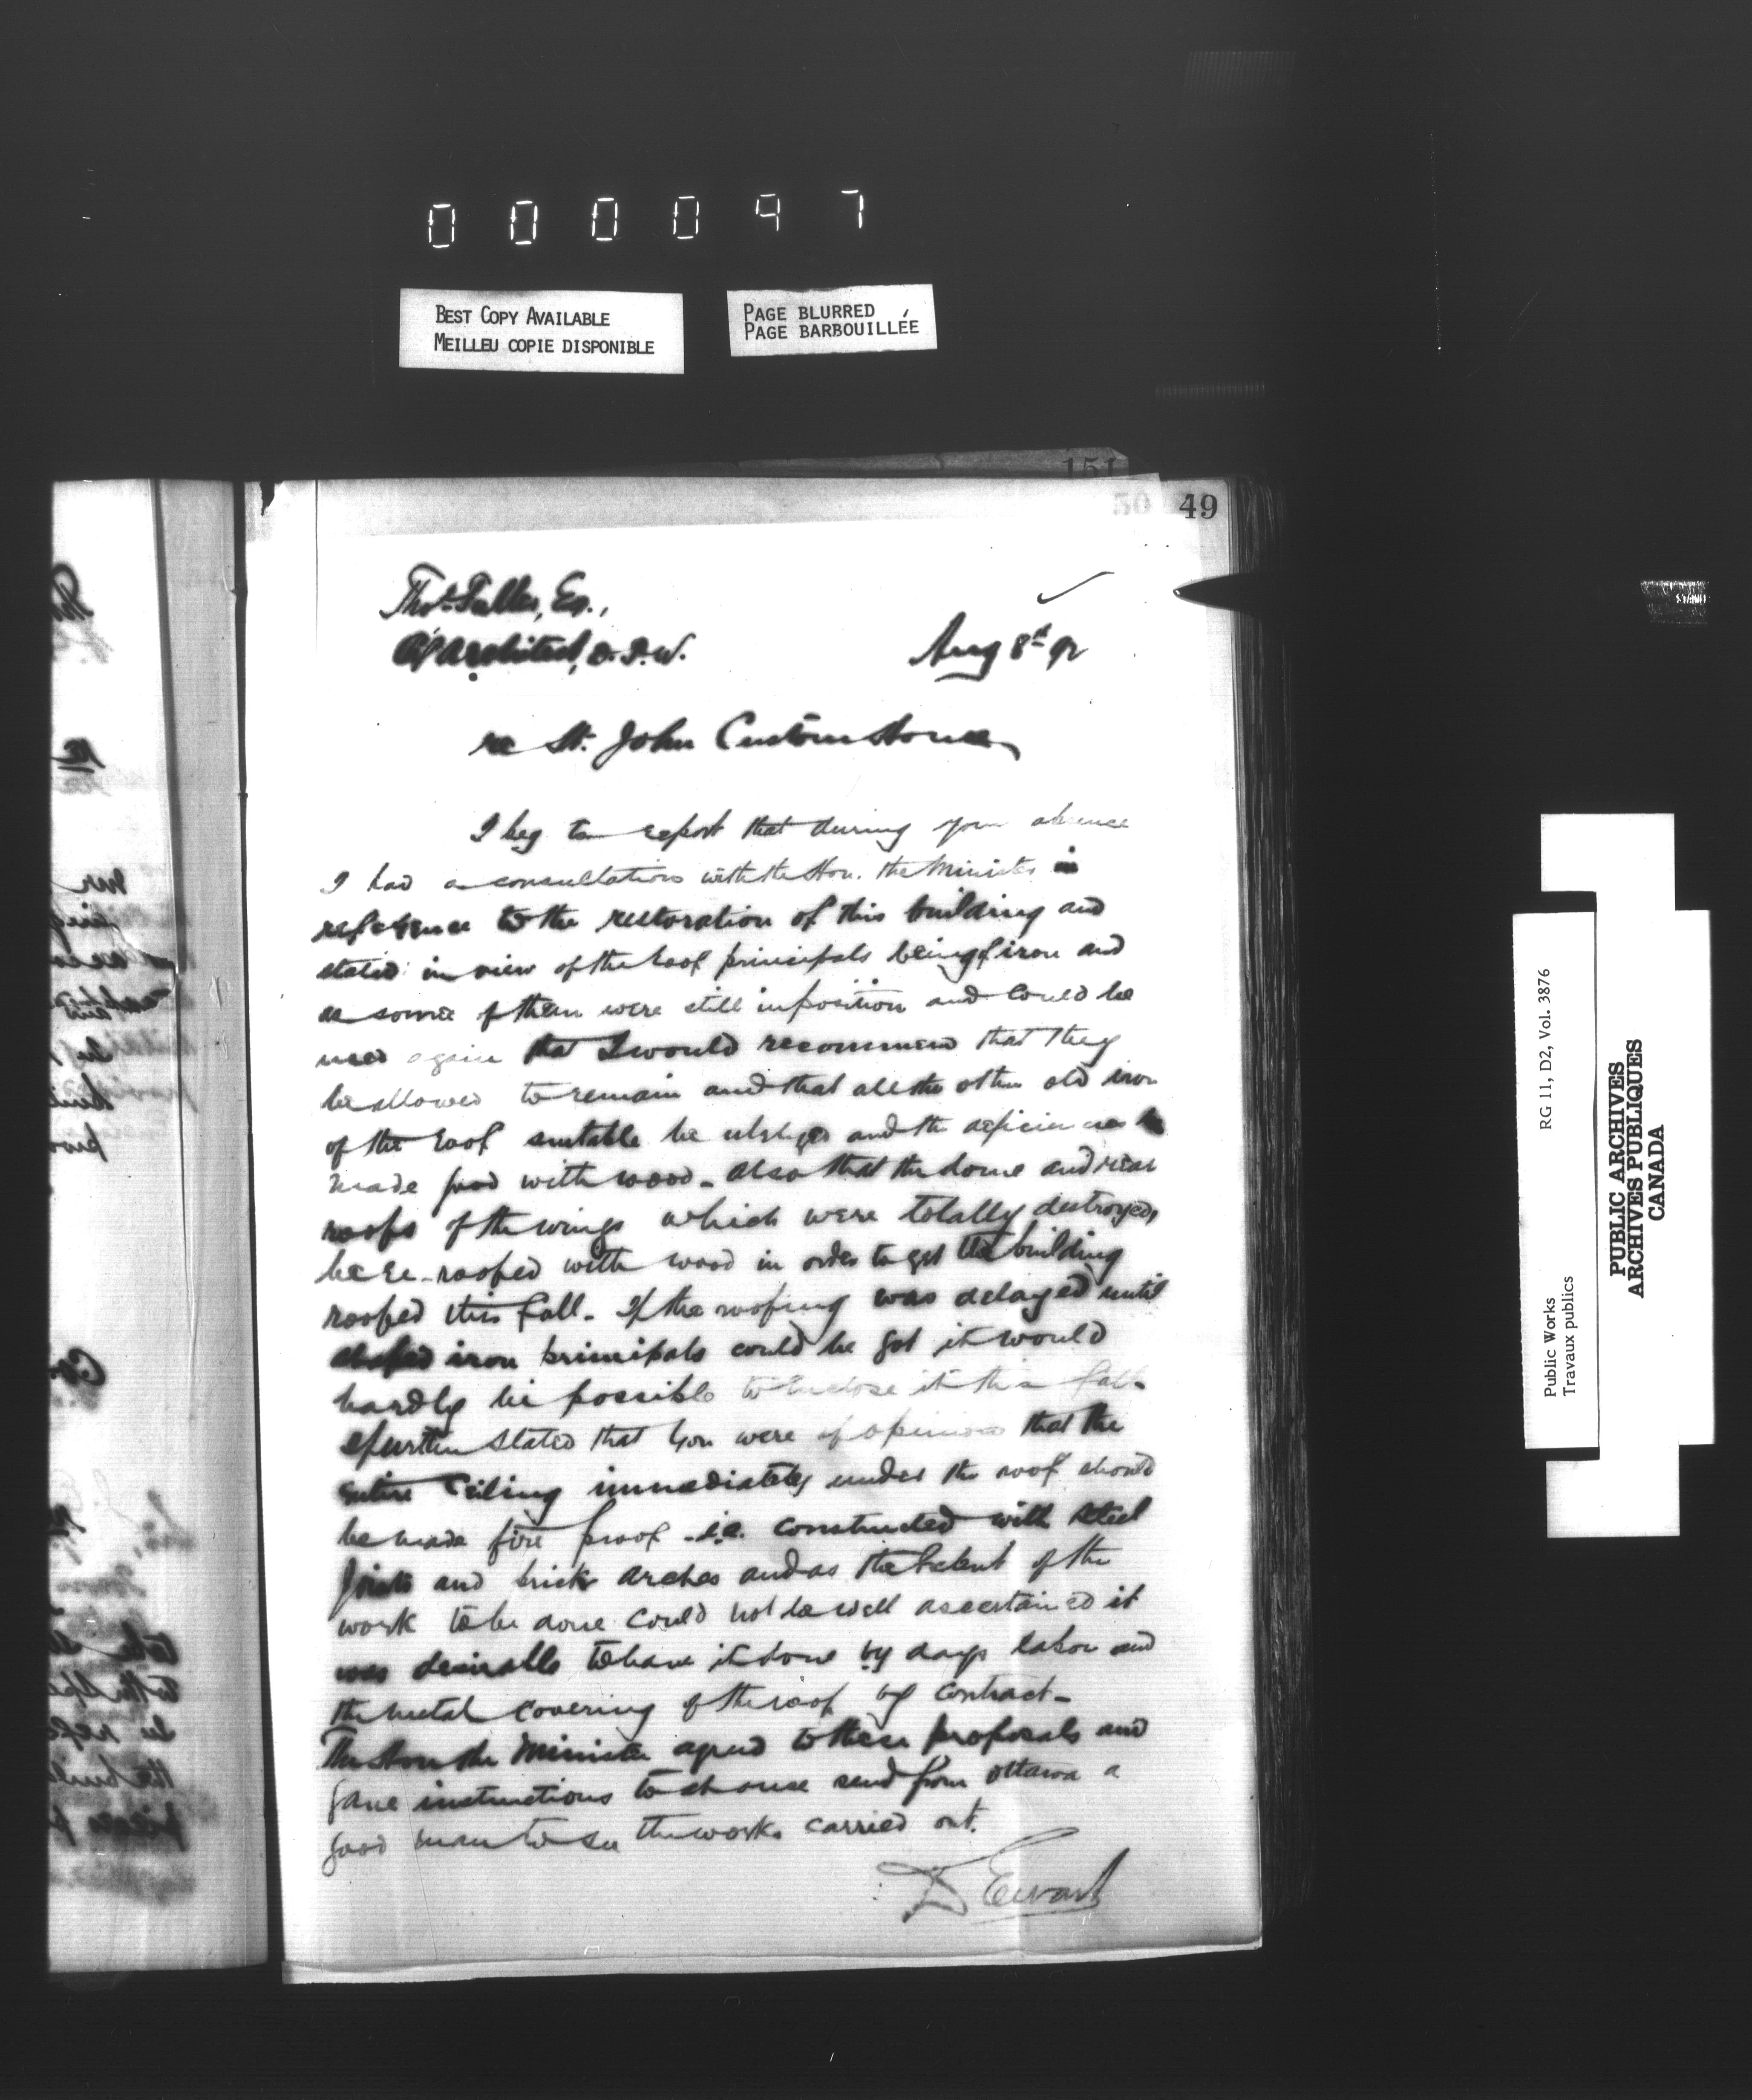 000097
BEST COPY AVAILABLE
MEILLEU COPIE DISPONIBLE
PAGE BLURRED
PAGE BARBOUILLÉE
151
50 49
Thos Fuller, Esq.,
Cf Architect, D.P.W.
Aug 8th 92
re St. John Custom House
I beg to report that during your absence
I had a consultation with the Hon. the Minister in
reference to the restoration of this building and
stated in view of the roof principals being of iron and
as some of them were still in position and could be
used again that I would recommend that they
be allowed to remain and that all the other old iron
of the roof suitable be utilized and the deficiencies be
made good with wood - also that the dome and rear
roofs of the wings which were totally destroyed,
be re-roofed with wood in order to get the building
roofed this fall - If the roofing was delayed until
iron principals could be got it would
hardly be possible to enclose it this fall -
I further stated that you were of opinion that the
entire ceiling immediately under the roof should
be made fire proof - i.e. constructed with steel
joists and brick arches and as the extent of the
work to be done could not be well ascertained it
was desirable to have it done by days labor and
the metal covering of the roof by contract -
The Hon the Minister agreed to these proposals and
gave instructions to send from Ottawa a
good man to see the works carried out.
D Ewart
RG 11, D2, Vol. 3876
Public Works
Travaux publics
PUBLIC ARCHIVES
ARCHIVES PUBLIQUES
CANADA